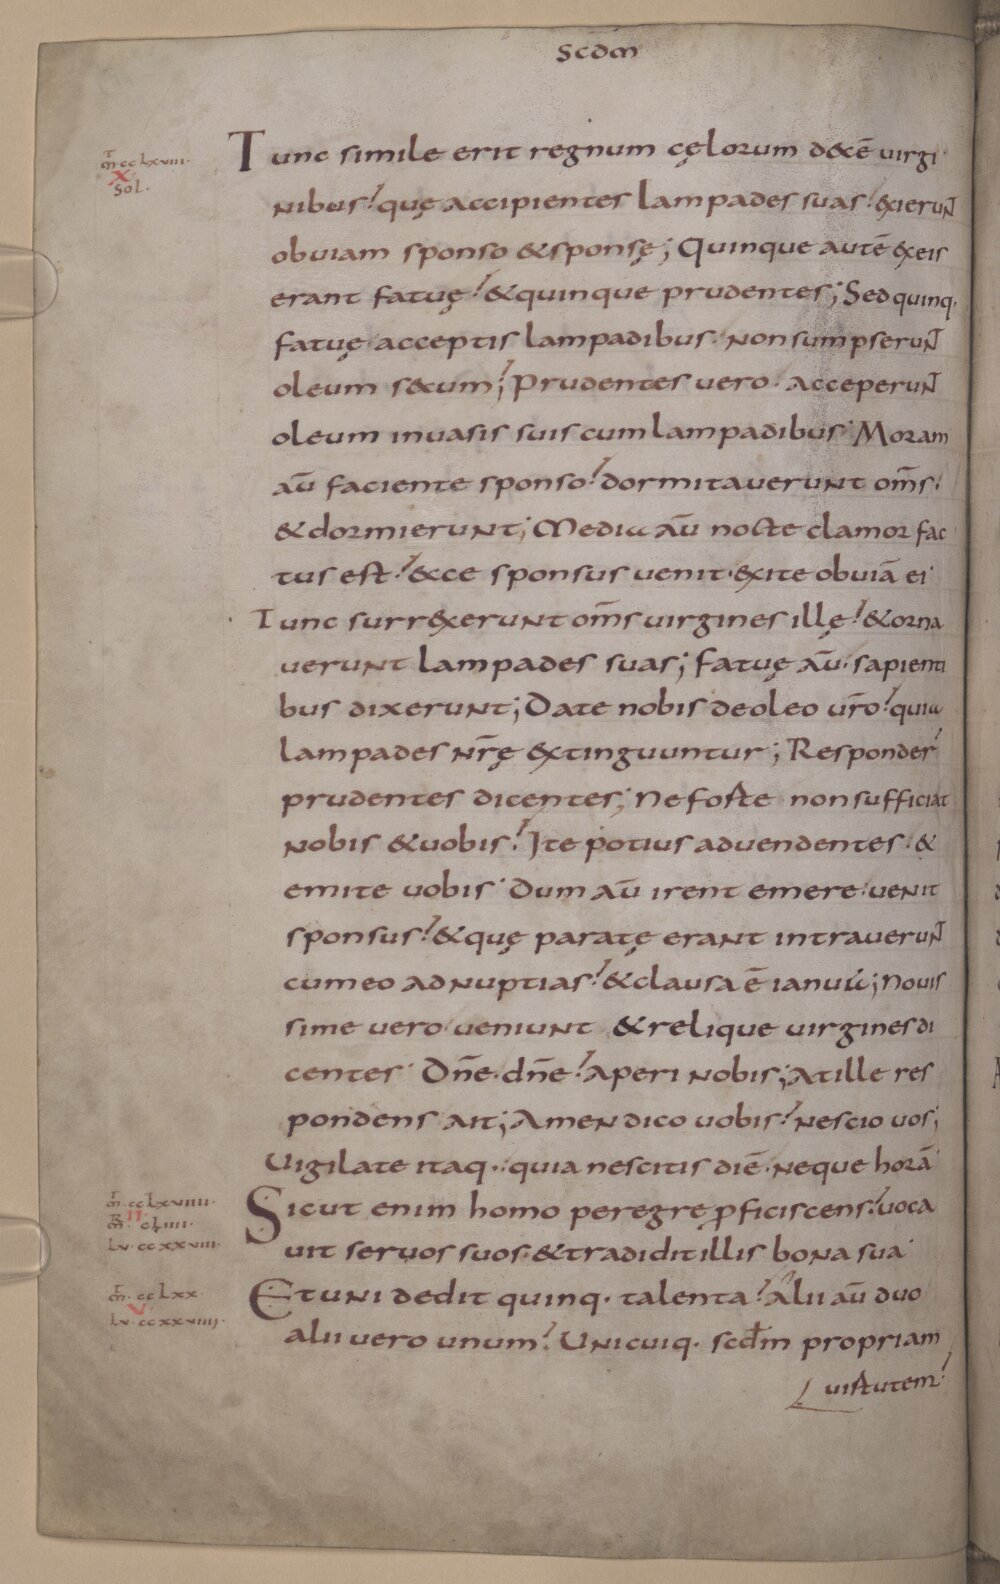 Scdm
mt cclxviii.
X
Sol.
Tunc simile erit regnum cęlorum d&cē virgi
nibus? quę accipientes lampades suas? exierunt
obviam sponso & sponsę; Quinque autē ex eis
erant fatuę? & quinque prudentes; Sed quinq.
fatuę acceptis lampadibus. non sumpserunt
oleum s&cum; Prudentes vero. acceperunt
oleum in vasis suis cum lampadibus. Moram
aū faciente sponso? dormitaverunt om̄s.
& dormierunt; Media aū nocte clamor fac
tus est? &cce sponsus venit. exite obviā ei.
Tunc surrexerunt om̄s virgines illę? & orna
verunt lampades suas; fatuę aū. sapienti
bus dixerunt; Date nobis de oleo vr̄o? quia
lampades nr̄ę extinguuntur; Responder
prudentes dicentes; Ne forte non sufficiat
nobis & vobis? Ite potius ad vendentes. &
emite vobis. Dum aū irent emere. venit
sponsus? & quę paratę erant intraverunt
cum eo ad nuptias? & clausa ē ianua; Novis
sime vero veniunt & relique virgines di
centes. Dn̄e. dn̄e? aperi nobis; At ille res
pondens ait; Amen dico vobis? nescio vos;
Vigilate itaq. quia nescitis diē. neque horā
mt. cclxviiii.
mr. cliiii.
II
Lv. ccxxviii.
Sicut enim homo peregre ꝓficiscens? voca
vit servos suos. & tradidit illis bona sua.
mt. cclxx.
V
Lv. ccxxviiii.
Et uni dedit quinq. talenta? alii aū duo
alii vero unum? Unicuiq. scdm propriam
virtutem?